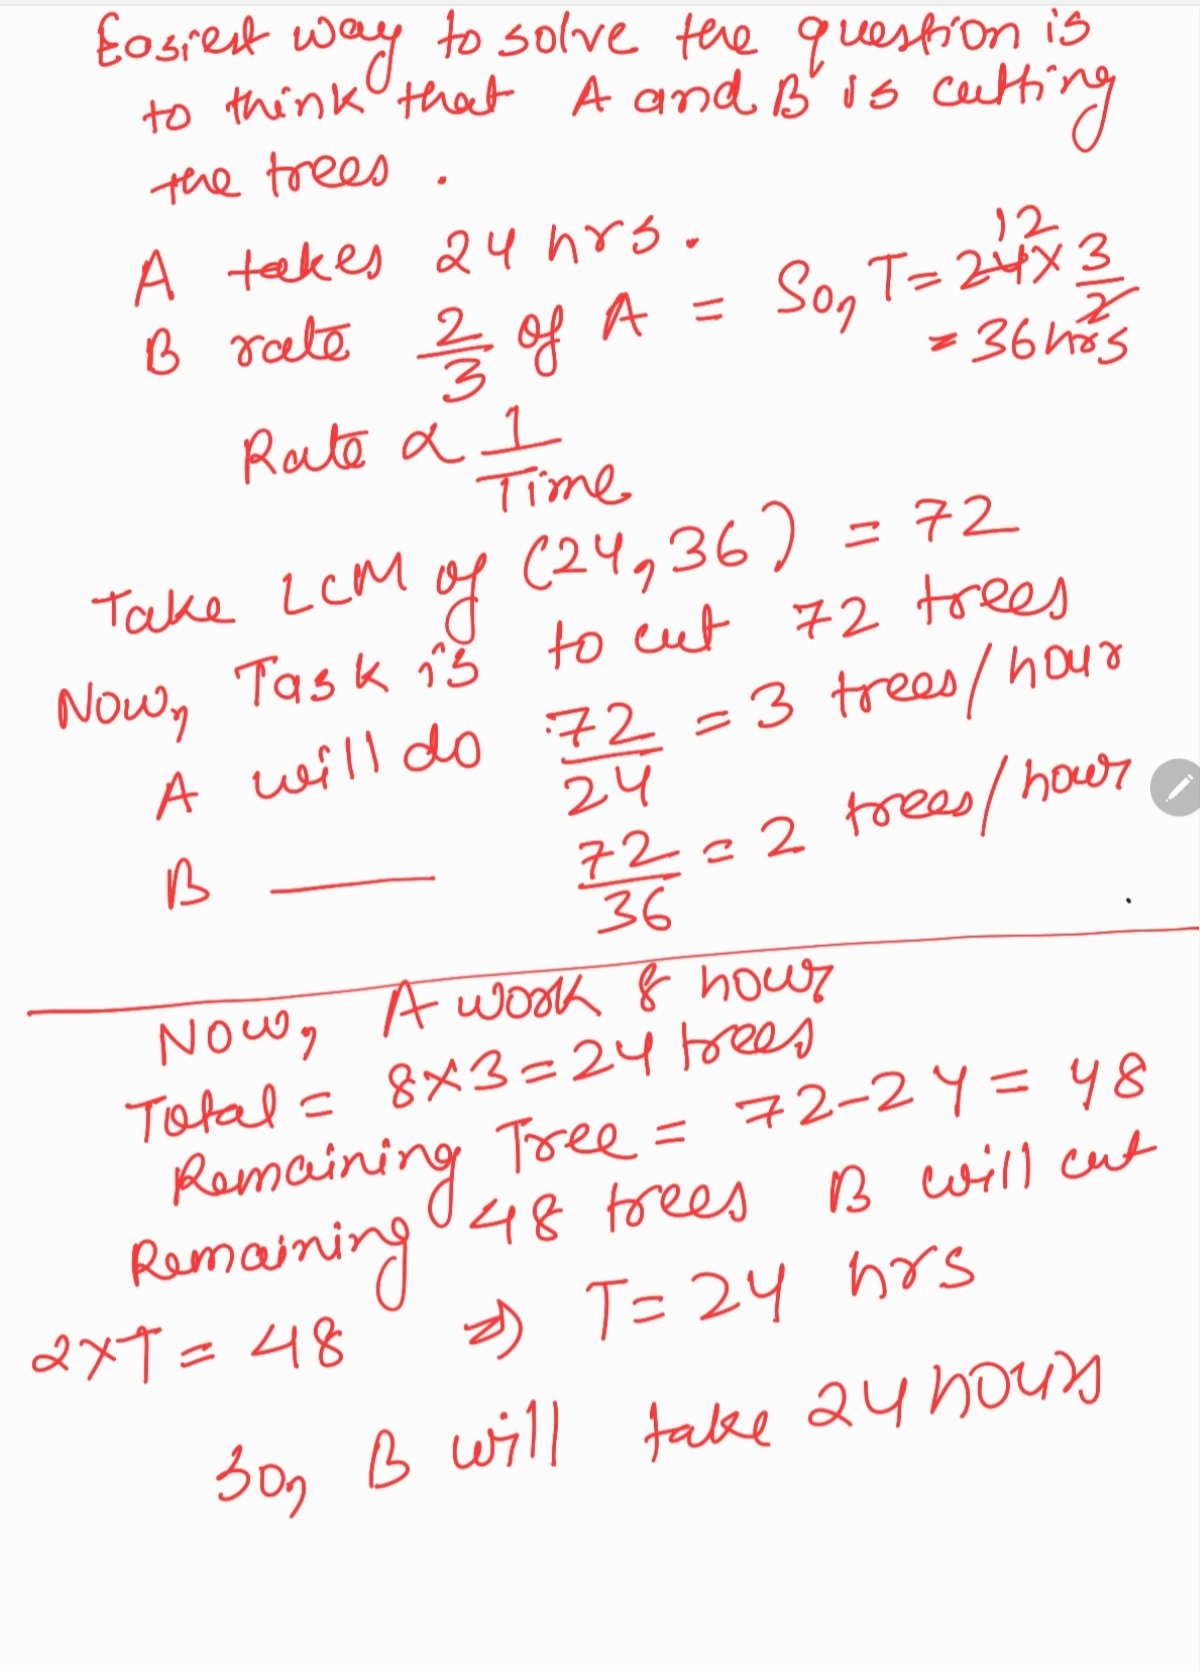 Easiest way to solve the question is
to think that A and B is cutting
the trees.
A takes 24 hrs.
B rate 2/3 of A = So, T = 24 12 × 3/2
= 36 hrs
Rate ∝ 1/Time
Take LCM of (24, 36) = 72
Now, Task is to cut 72 trees
A will do 72/24 = 3 trees/hour
B — 72/36 = 2 trees/hour
Now, A work 8 hour
Total = 8×3 = 24 trees
Remaining Tree = 72-24 = 48
Remaining 48 trees B will cut
2×T = 48 ⇒ T = 24 hrs
So, B will take 24 hours